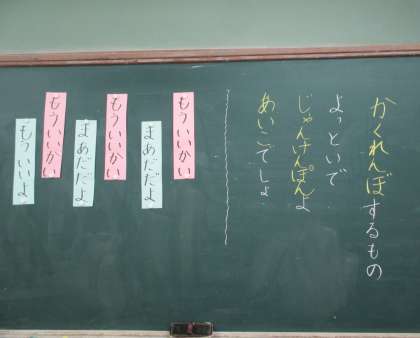 かくれんぼするもの
よっといで
じゃんけんぽんよ
あいこでしょ
もういいかい
まあだだよ
もういいかい
まあだだよ
もういいかい
もういいよ